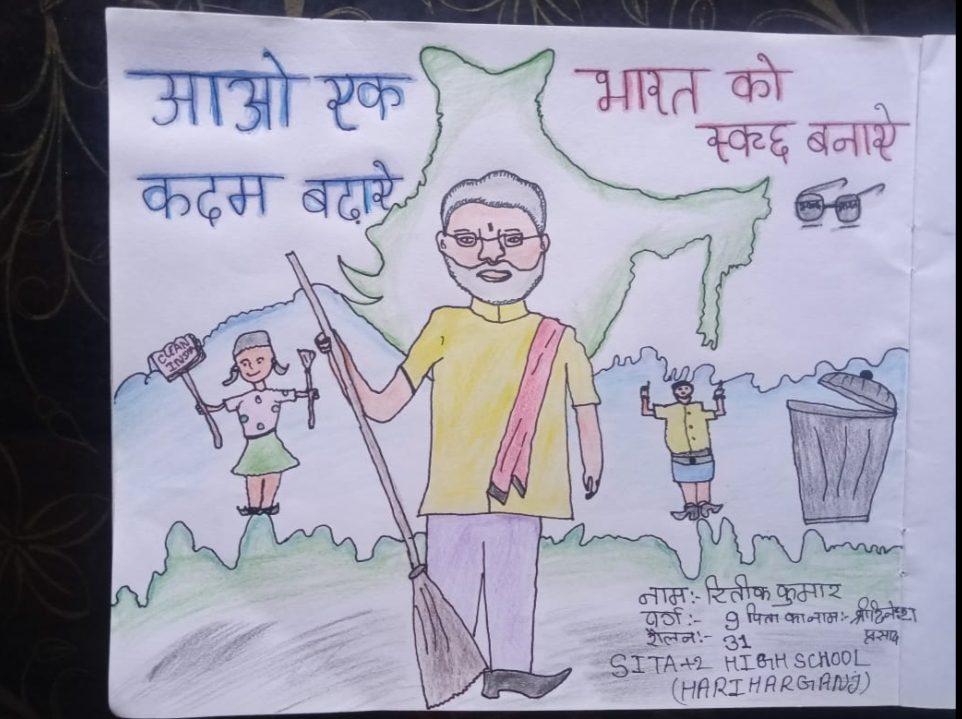 आओ एक
कदम बढ़ाऐ
भारत को
स्वच्छ बनाऐ
CLEAN
INDIA
नाम:- रितीक कुमार
वर्ग:- 9 पिता का नाम:- श्री दिनेश
प्रसाद
रौलन:- 31
SITA+2 HIGH SCHOOL
(HARIHARGANJ)